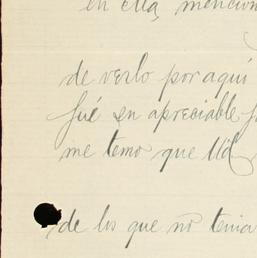 en ella, mencion
de verlo por aquí
fué su apreciable
me temo que Ud.
de los que no tenia